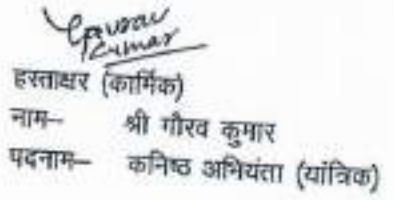 Gaurav
Kumar
हस्ताक्षर (कार्मिक)
नाम– श्री गौरव कुमार
पदनाम– कनिष्ठ अभियंता (यांत्रिक)